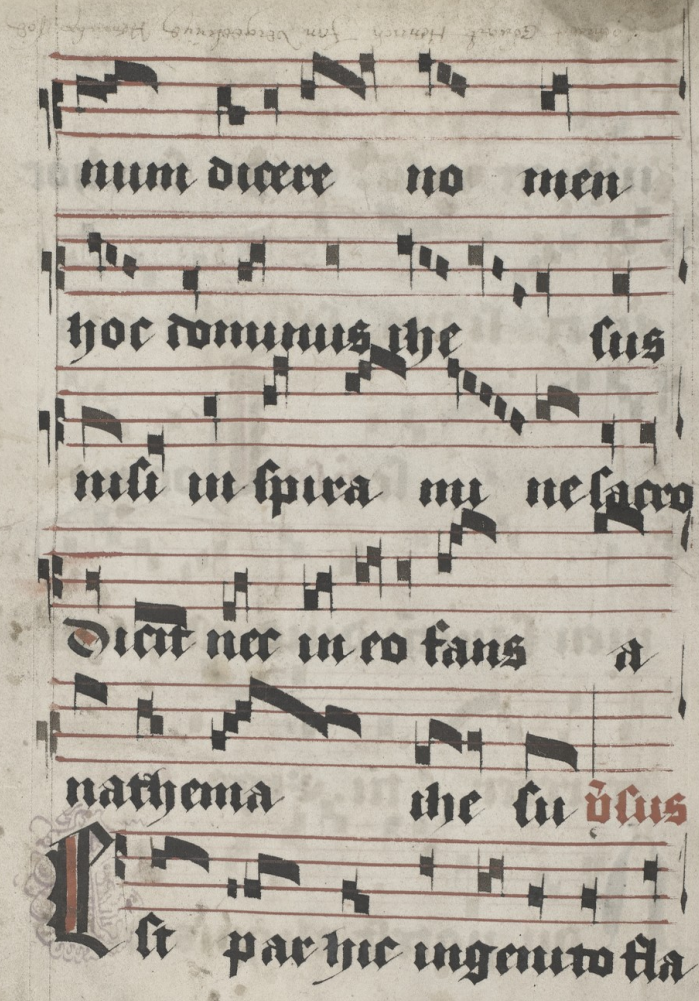 num dicere no men
hoc dominus ihe sus
nisi in spira mi ne sacro
Dicit nec in eo fans a
nathema ihe su v̄sus
Est par hic ingenito fla